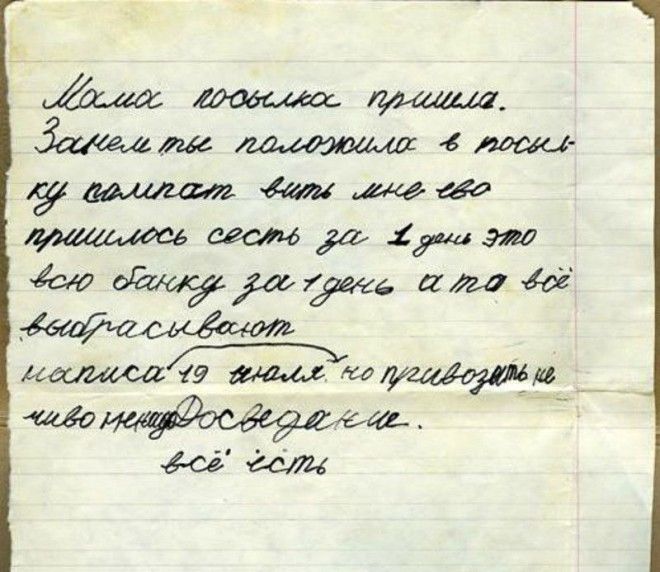 Мама посылка пришла.
Занем ты положила в посыл-
ку кампат вить мне ево
пришлось сесть за 1 день это
всю банку за 1 день а та всё
выбрасывают
написа 19 июля. но привозить не
чиво Досведание.
всё есть